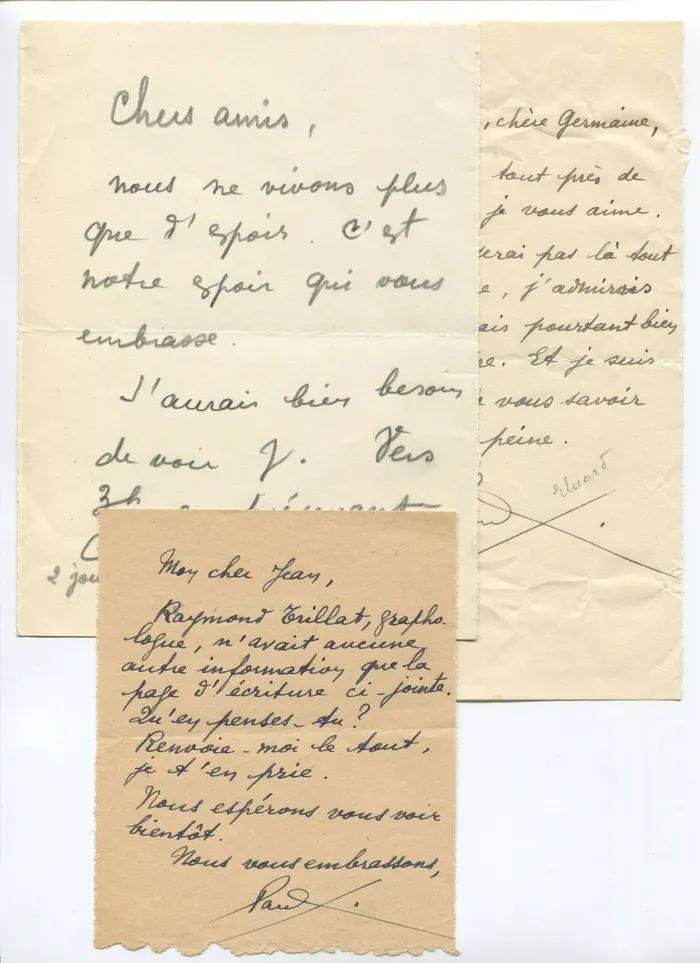 Chers amis,
nous ne vivons plus
que d'espoir. C'est
notre espoir qui vous
embrasse.
J'aurais bien besoin
de voir J. Vers
3h
2 jou
, chère Germaine,
tout près de
je vous aime.
serai pas là tout
e, j'admirais
ais pourtant bien
re. Et je suis
vous savoir
peine.
Eluard
Mon cher Jean,
Raymond Trillat, grapho-
logue, n'avait aucune
autre information que la
page d'écriture ci-jointe.
Qu'en penses-tu?
Renvoie-moi le tout,
je t'en prie.
Nous espérons vous voir
bientôt.
Nous vous embrassons,
Paul